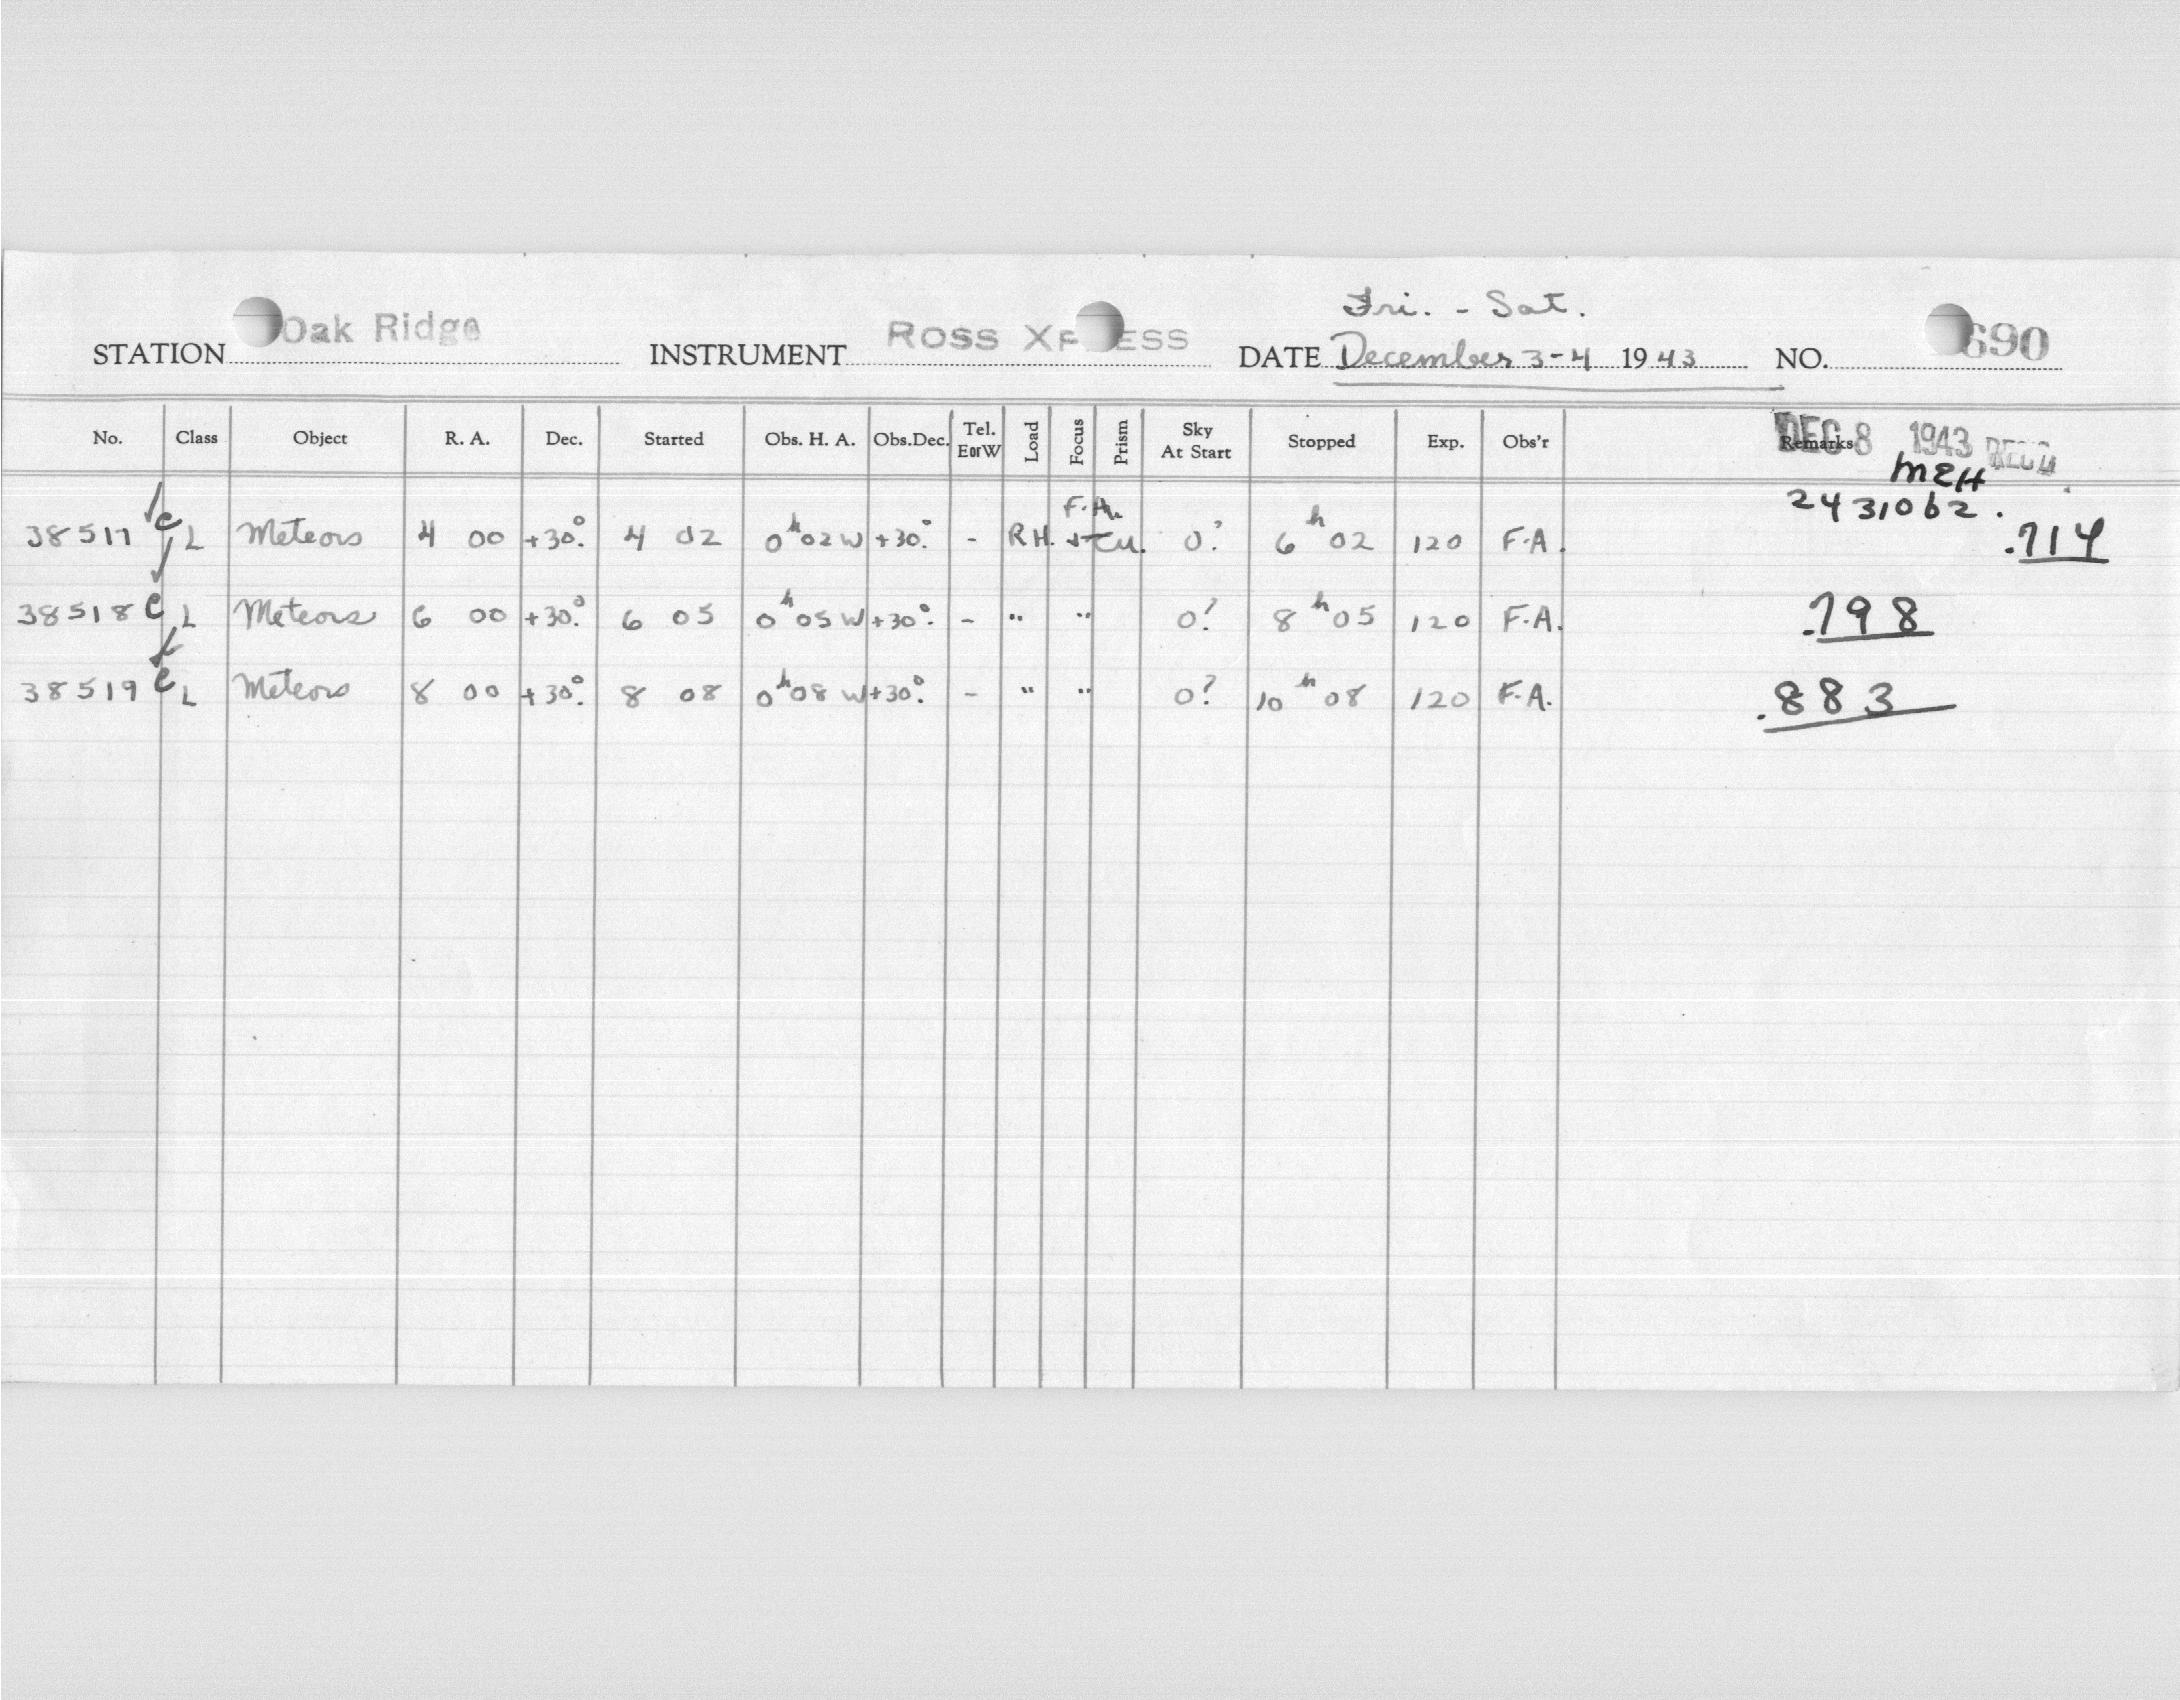 Fri. - Sat.
STATION Oak Ridge INSTRUMENT ROSS XP ESS DATE December 3-4 1943 NO. 690
No. Class Object R. A. Dec. Started Obs. H. A. Obs.Dec. Tel. EorW Load Focus Prism Sky At Start Stopped Exp. Obs'r Remarks
DEC 8 1943 REC'D
MEH
2431062.
38517 C L Meteors 4 00 +30°. 4 02 0h 02 W +30°. - RH. 0? 6h 02 120 F.A. .714
38518 C L Meteors 6 00 +30°. 6 05 0h 05 W +30°. - " " 0? 8h 05 120 F.A. .798
38519 C L Meteors 8 00 +30°. 8 08 0h 08 W +30°. - " " 0? 10h 08 120 F.A. .883